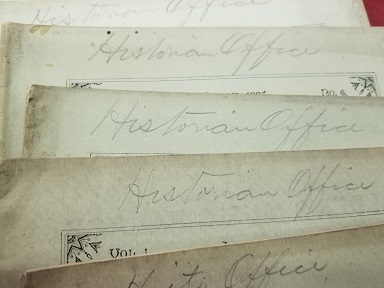 Historian Office
Historian Office
No. 8
Historian Office
Historian Office
Vol.
Office